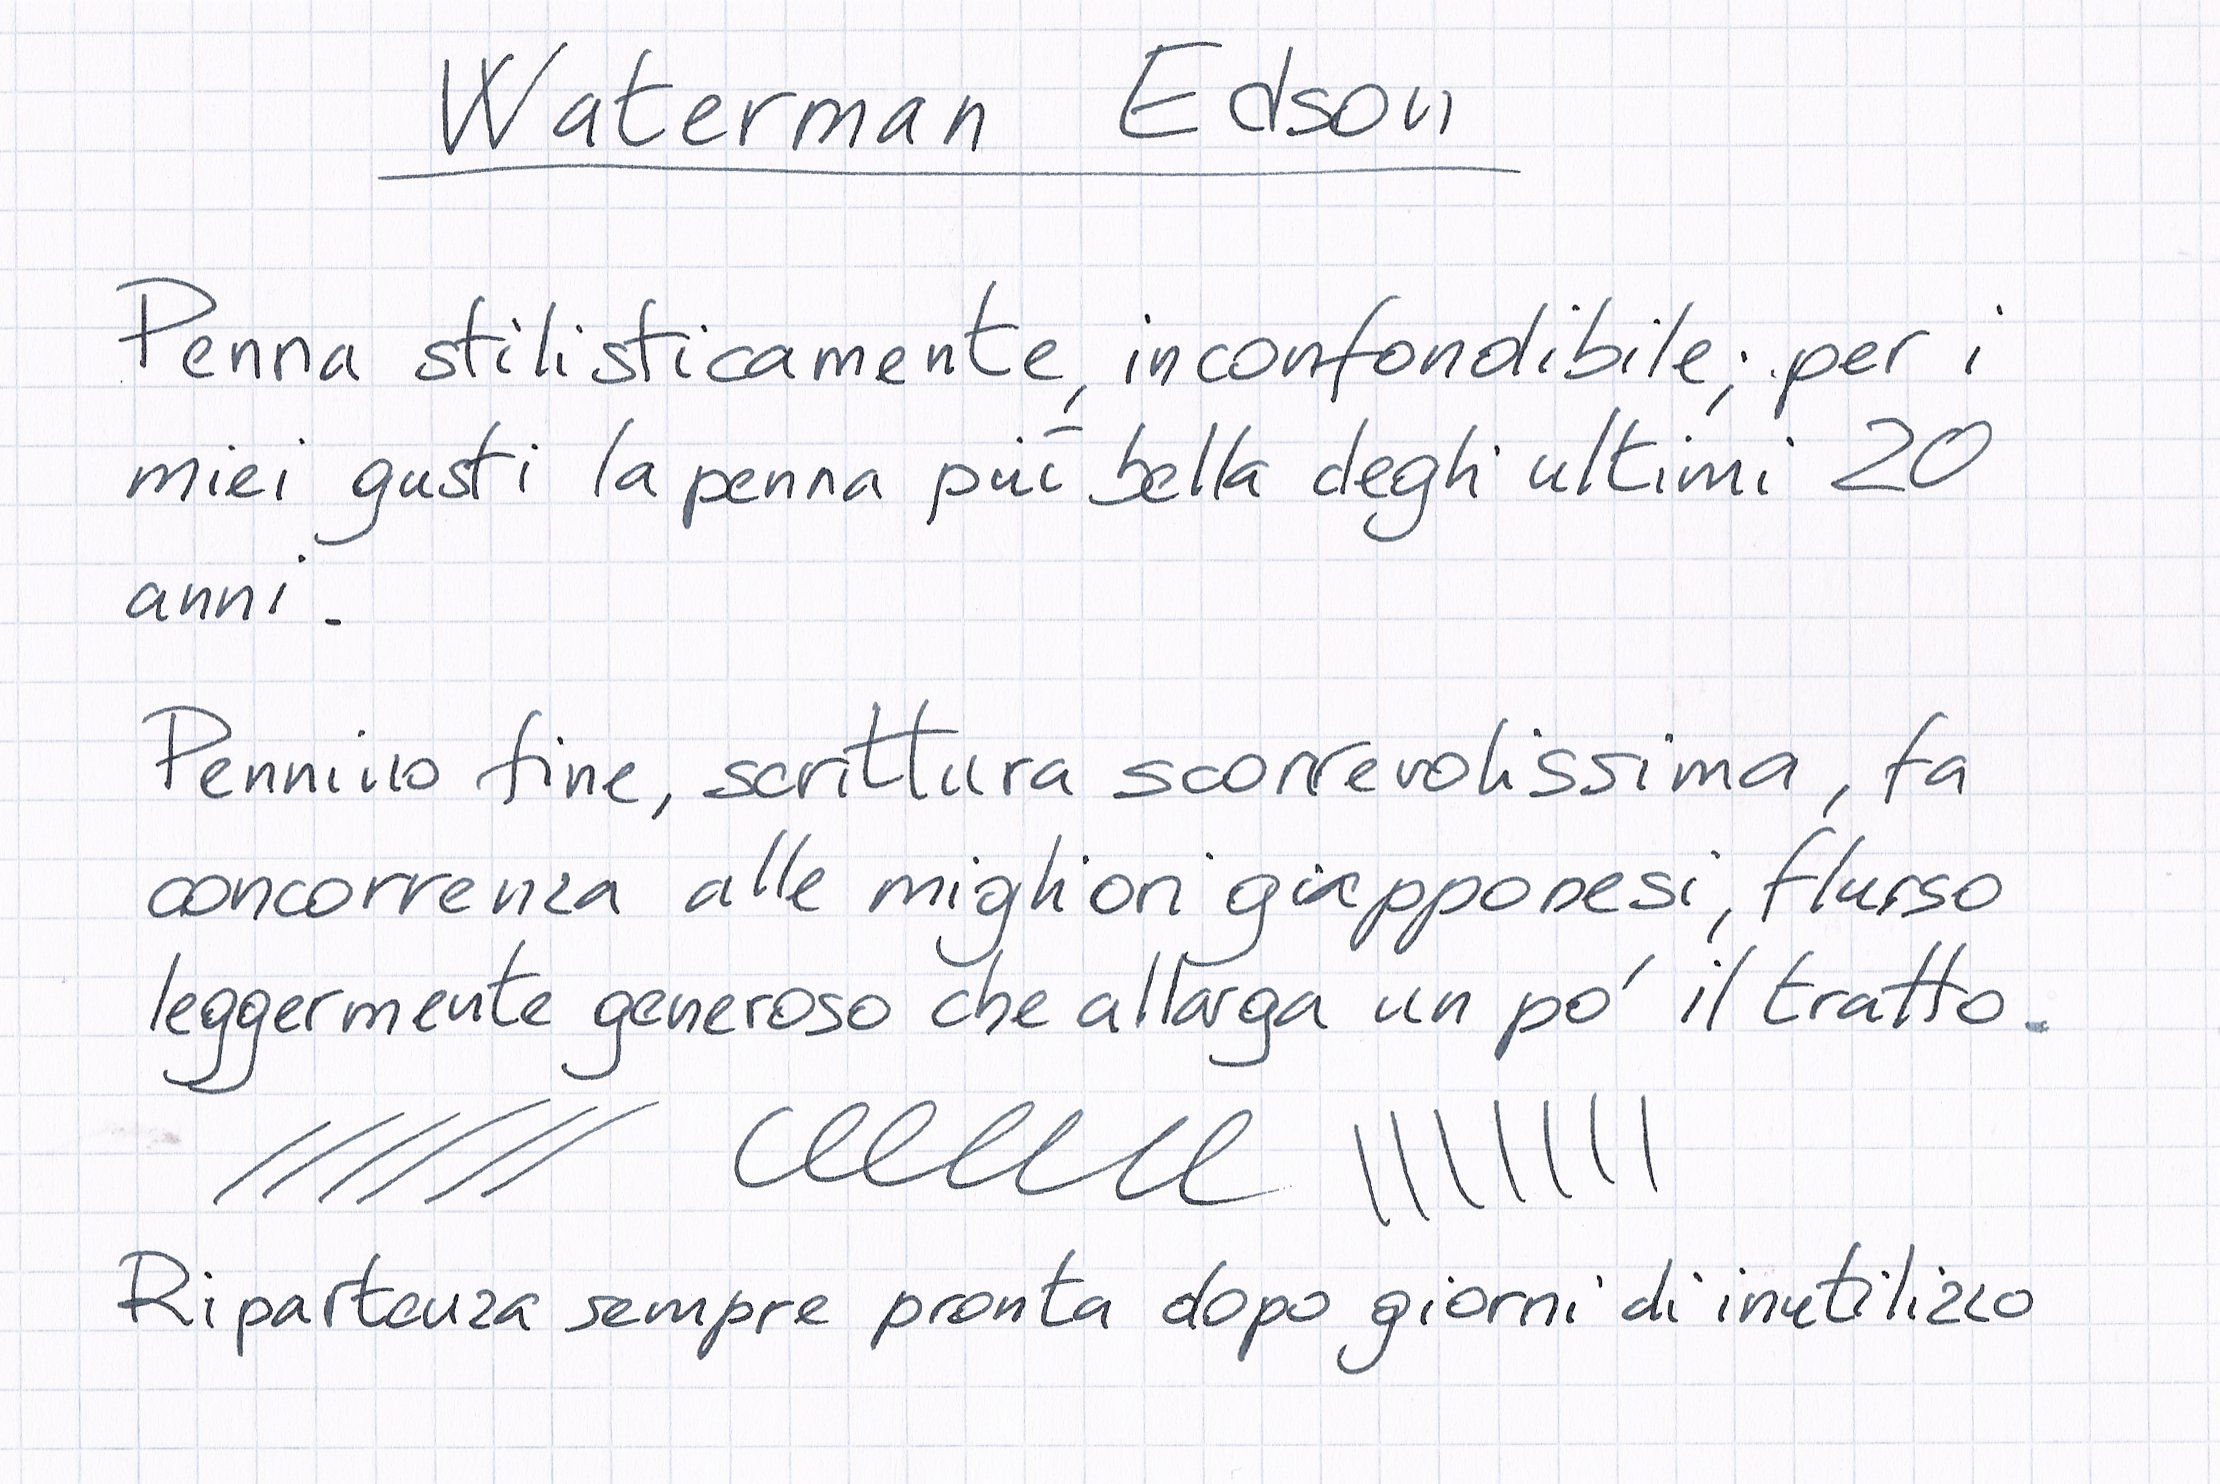 Waterman Edson
Penna stilisticamente, inconfondibile; per i
miei gusti la penna più bella degli ultimi 20
anni.
Pennino fine, scrittura scorrevolissima, fa
concorrenza alle migliori giapponesi, flusso
leggermente generoso che allarga un po' il tratto.
Ripartenza sempre pronta dopo giorni di inutilizzo